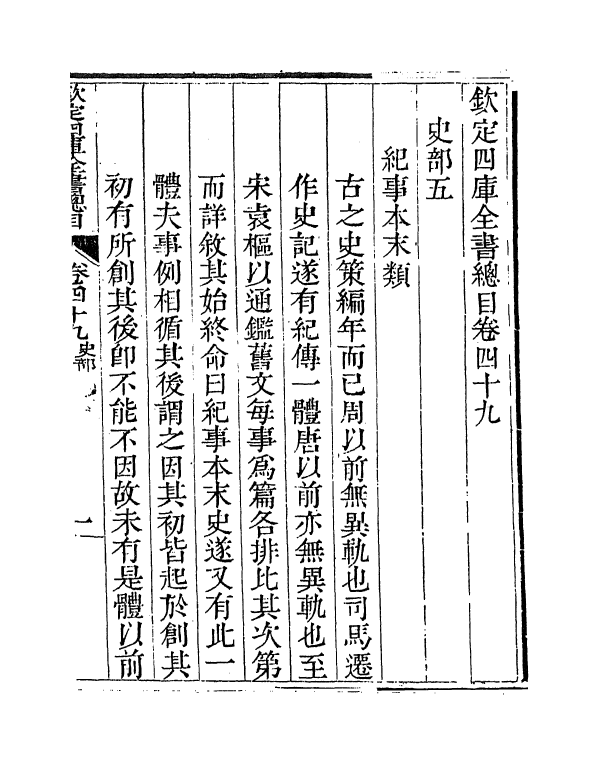 欽定四庫全書總目卷四十九
史部五
紀事本末類
古之史策編年而已周以前無異軌也司馬遷
作史記遂有紀傳一體唐以前亦無異軌也至
宋袁樞以通鑑舊文每事爲篇各排比其次第
而詳敘其始終命曰紀事本末史遂又有此一
體夫事例相循其後謂之因其初皆起於創其
初有所創其後卽不能不因故未有是體以前
欽定四庫全書總目 卷四十九 史部 一